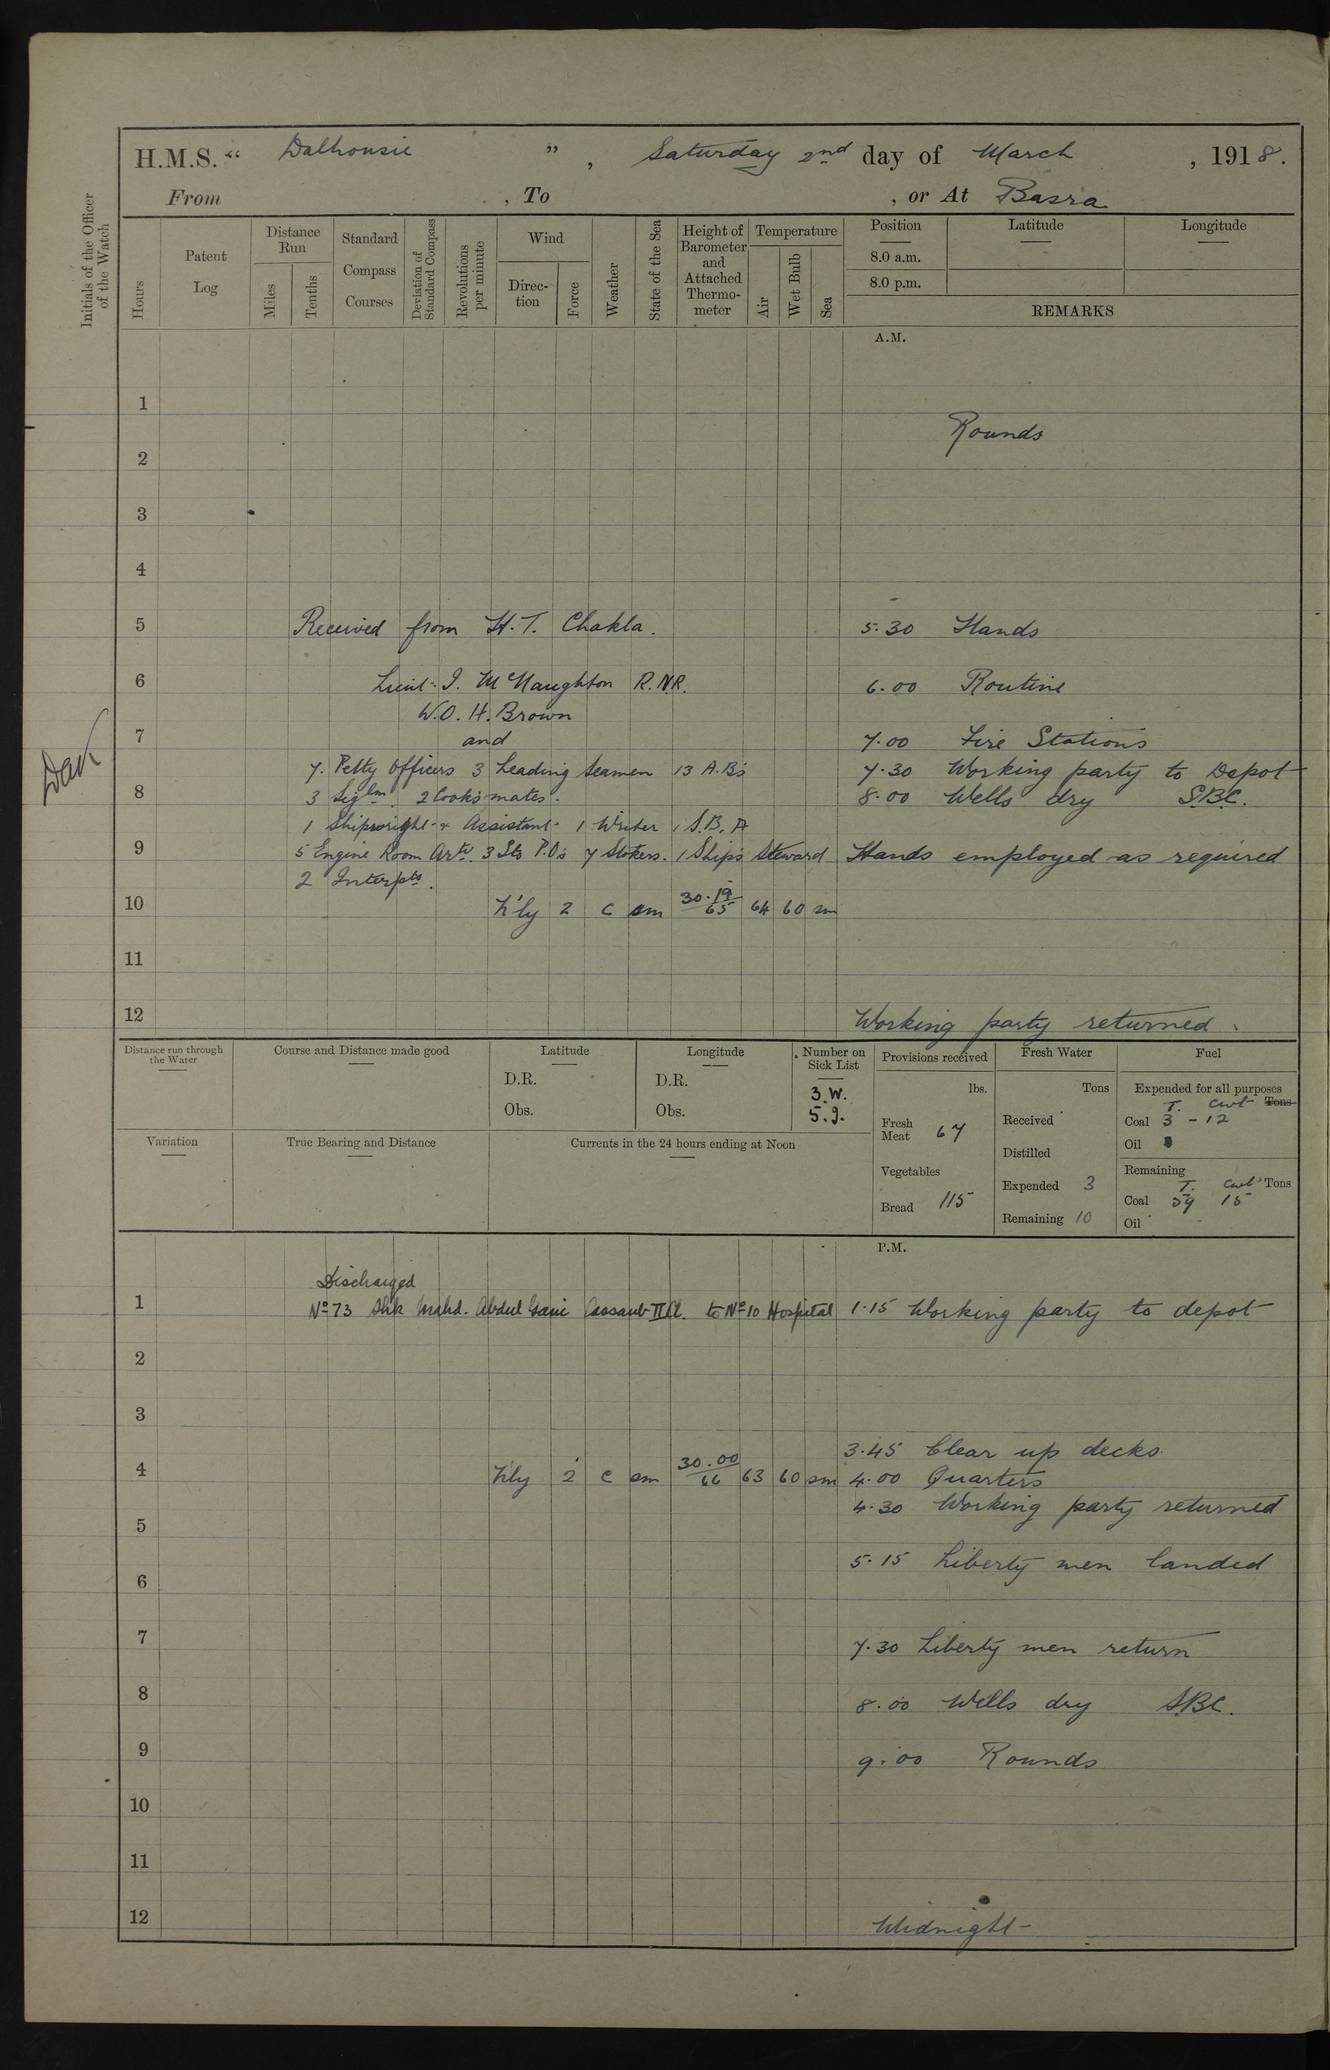 H.M.S. “ Dalhousie ” , Saturday 2nd day of March , 1918.
From , To , or At Basra
Initials of the Officer of the Watch
Hours
Patent Log
Distance Run
Miles
Tenths
Standard Compass Courses
Deviation of Standard Compass
Revolutions per minute
Wind
Direction
Force
Weather
State of the Sea
Height of Barometer and Attached Thermometer
Temperature
Air
Wet Bulb
Sea
Position
8.0 a.m.
8.0 p.m.
Latitude
Longitude
REMARKS
A.M.
1
Rounds
2
3
4
5 Received from H.T. Chakla. 5.30 Hands
6 Lieut. I. McNaughton R.N.R. 6.00 Routine
W.O. H. Brown
7 and 7.00 Fire Stations
7. Petty Officers 3 Leading Seamen 13 A.Bs 7.30 Working party to Depot
8 3 Siglm. 2 Cooks mates. 8.00 Wells dry S.B.C.
1 Shipwright & Assistant 1 Writer 1 S.B.A
9 5 Engine Room Arts. 3 Sto P.Os 7 Stokers. 1 Ships Steward Hands employed as required
2 Interpts.
10 N'ly 2 c sm 30.19/65 64 60 sm
11
12 Working party returned.
Distance run through the Water
Course and Distance made good
Latitude
D.R.
Obs.
Longitude
D.R.
Obs.
Number on Sick List
3.W.
5.I.
Variation
True Bearing and Distance
Currents in the 24 hours ending at Noon
Provisions received
lbs.
Fresh Meat 67
Vegetables
Bread 115
Fresh Water
Tons
Received
Distilled
Expended 3
Remaining 10
Fuel
Expended for all purposes
T. cwt Tons
Coal 3 - 12
Oil
Remaining
T. cwt Tons
Coal 59 15
Oil
P.M.
Discharged
1 No 73 Shk Mahd. Abdul Gani Cassaub II Cl. to No 10 Hospital 1.15 Working party to depot
2
3
3.45 Clear up decks
4 N'ly 2 c sm 30.00/66 63 60 sm 4.00 Quarters
4.30 Working party returned
5
5.15 Liberty men landed
6
7 7.30 Liberty men return
8 8.00 Wells dry S.B.C.
9 9.00 Rounds
10
11
12 Midnight